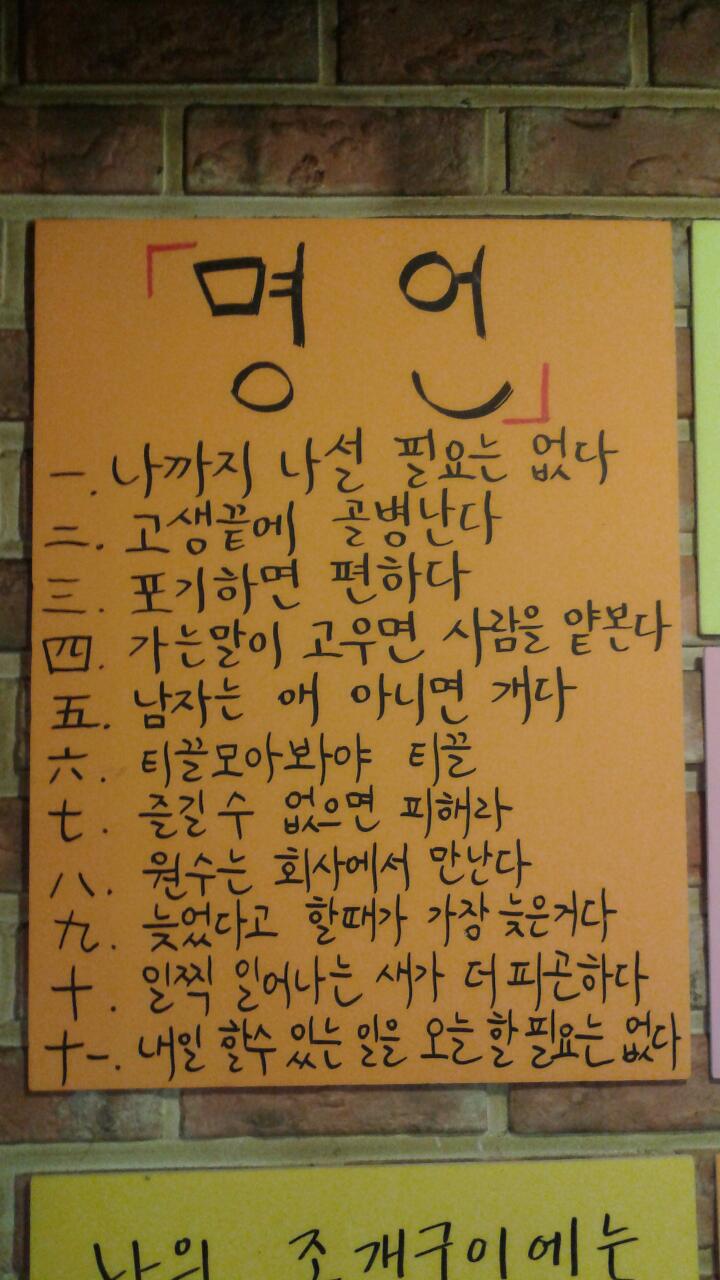 「명언」
一. 나까지 나설 필요는 없다
二. 고생끝에 골병난다
三. 포기하면 편하다
四. 가는말이 고우면 사람을 얕본다
五. 남자는 애 아니면 개다
六. 티끌모아봐야 티끌
七. 즐길수 없으면 피해라
八. 원수는 회사에서 만난다
九. 늦었다고 할때가 가장 늦은거다
十. 일찍 일어나는 새가 더 피곤하다
十一. 내일 할수 있는 일을 오늘 할 필요는 없다
나의 조개구이에는